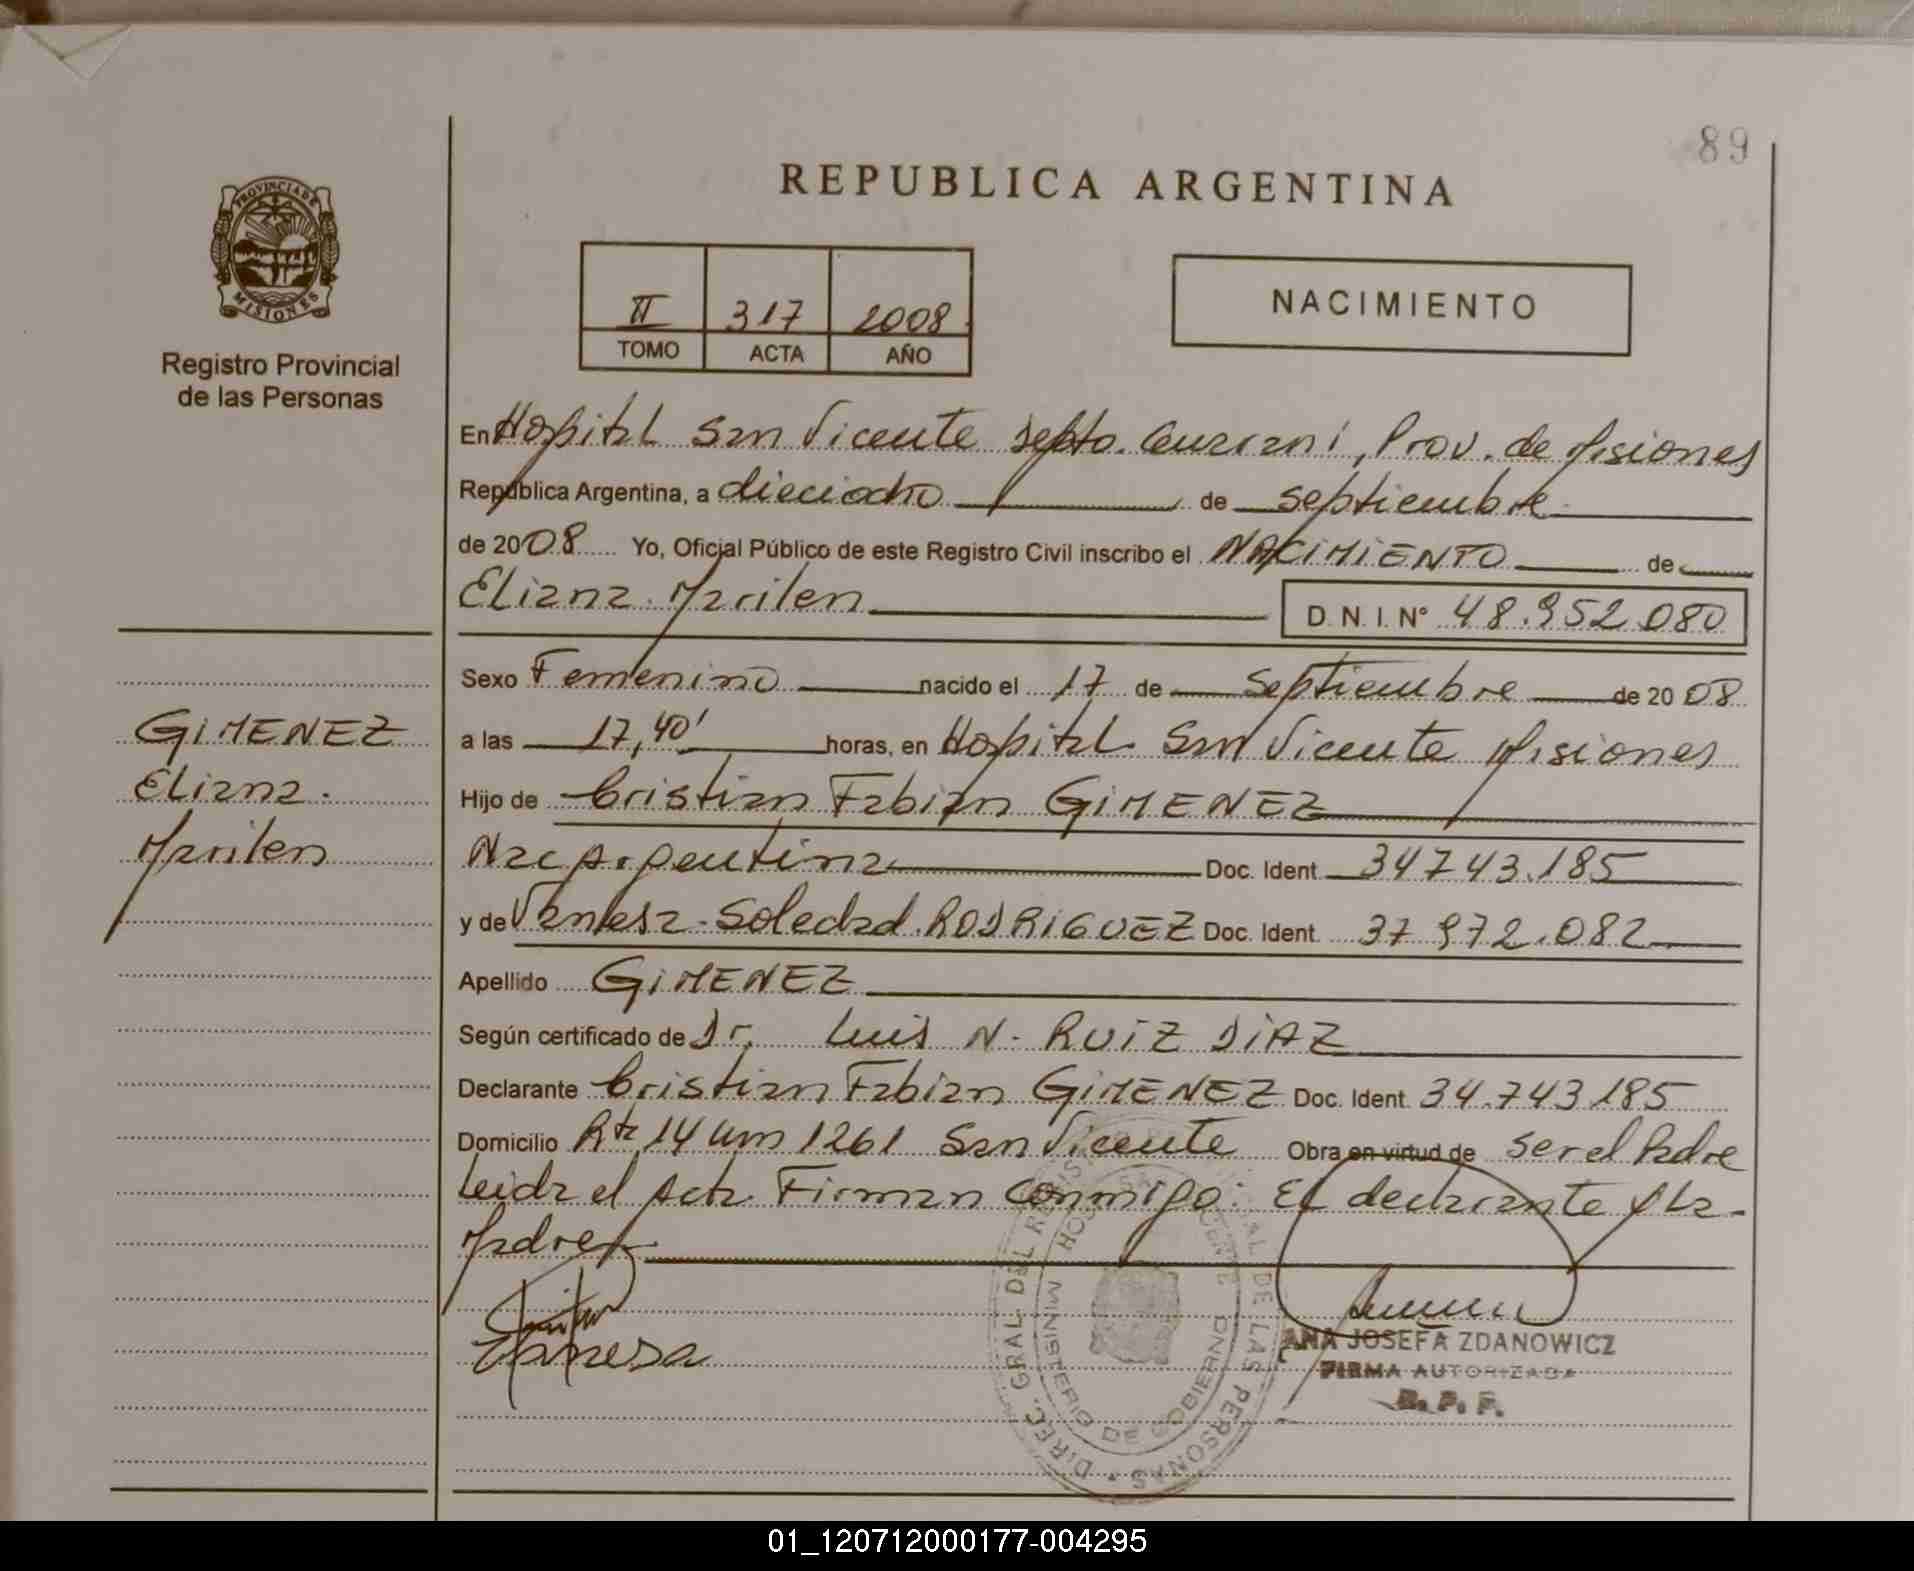 89
REPUBLICA ARGENTINA
PROVINCIA DE
MISIONES
Registro Provincial
de las Personas
II 317 2008
TOMO ACTA AÑO
NACIMIENTO
En Hospital San Vicente Depto. Guarani, Prov. de Misiones
República Argentina, a dieciocho de Septiembre
de 2008 Yo, Oficial Público de este Registro Civil inscribo el NACIMIENTO de
Eliana Marilen D.N.I. Nº 48.952.080
Sexo Femenino nacido el 17 de Septiembre de 2008
GIMENEZ
Eliana
Marilen
a las 17,40' horas, en Hospital San Vicente Misiones
Hijo de Cristian Fabian GIMENEZ
Nac Argentina Doc. Ident. 34743.185
y de Vanesa Soledad RODRIGUEZ Doc. Ident. 37972.082
Apellido GIMENEZ
Según certificado de Dr. Luis N. RUIZ DIAZ
Declarante Cristian Fabian GIMENEZ Doc. Ident. 34.743.185
Domicilio Rta 14 Km 1261 San Vicente Obra en virtud de ser el Padre
Leida el Acta Firman Conmigo: El declarante y la
Madre
Vanesa
DIREC. GRAL. DEL REGIST. DE LAS PERSONAS
MINISTERIO DE GOBIERNO
ANA JOSEFA ZDANOWICZ
FIRMA AUTORIZADA
R. P. P.
01_120712000177-004295